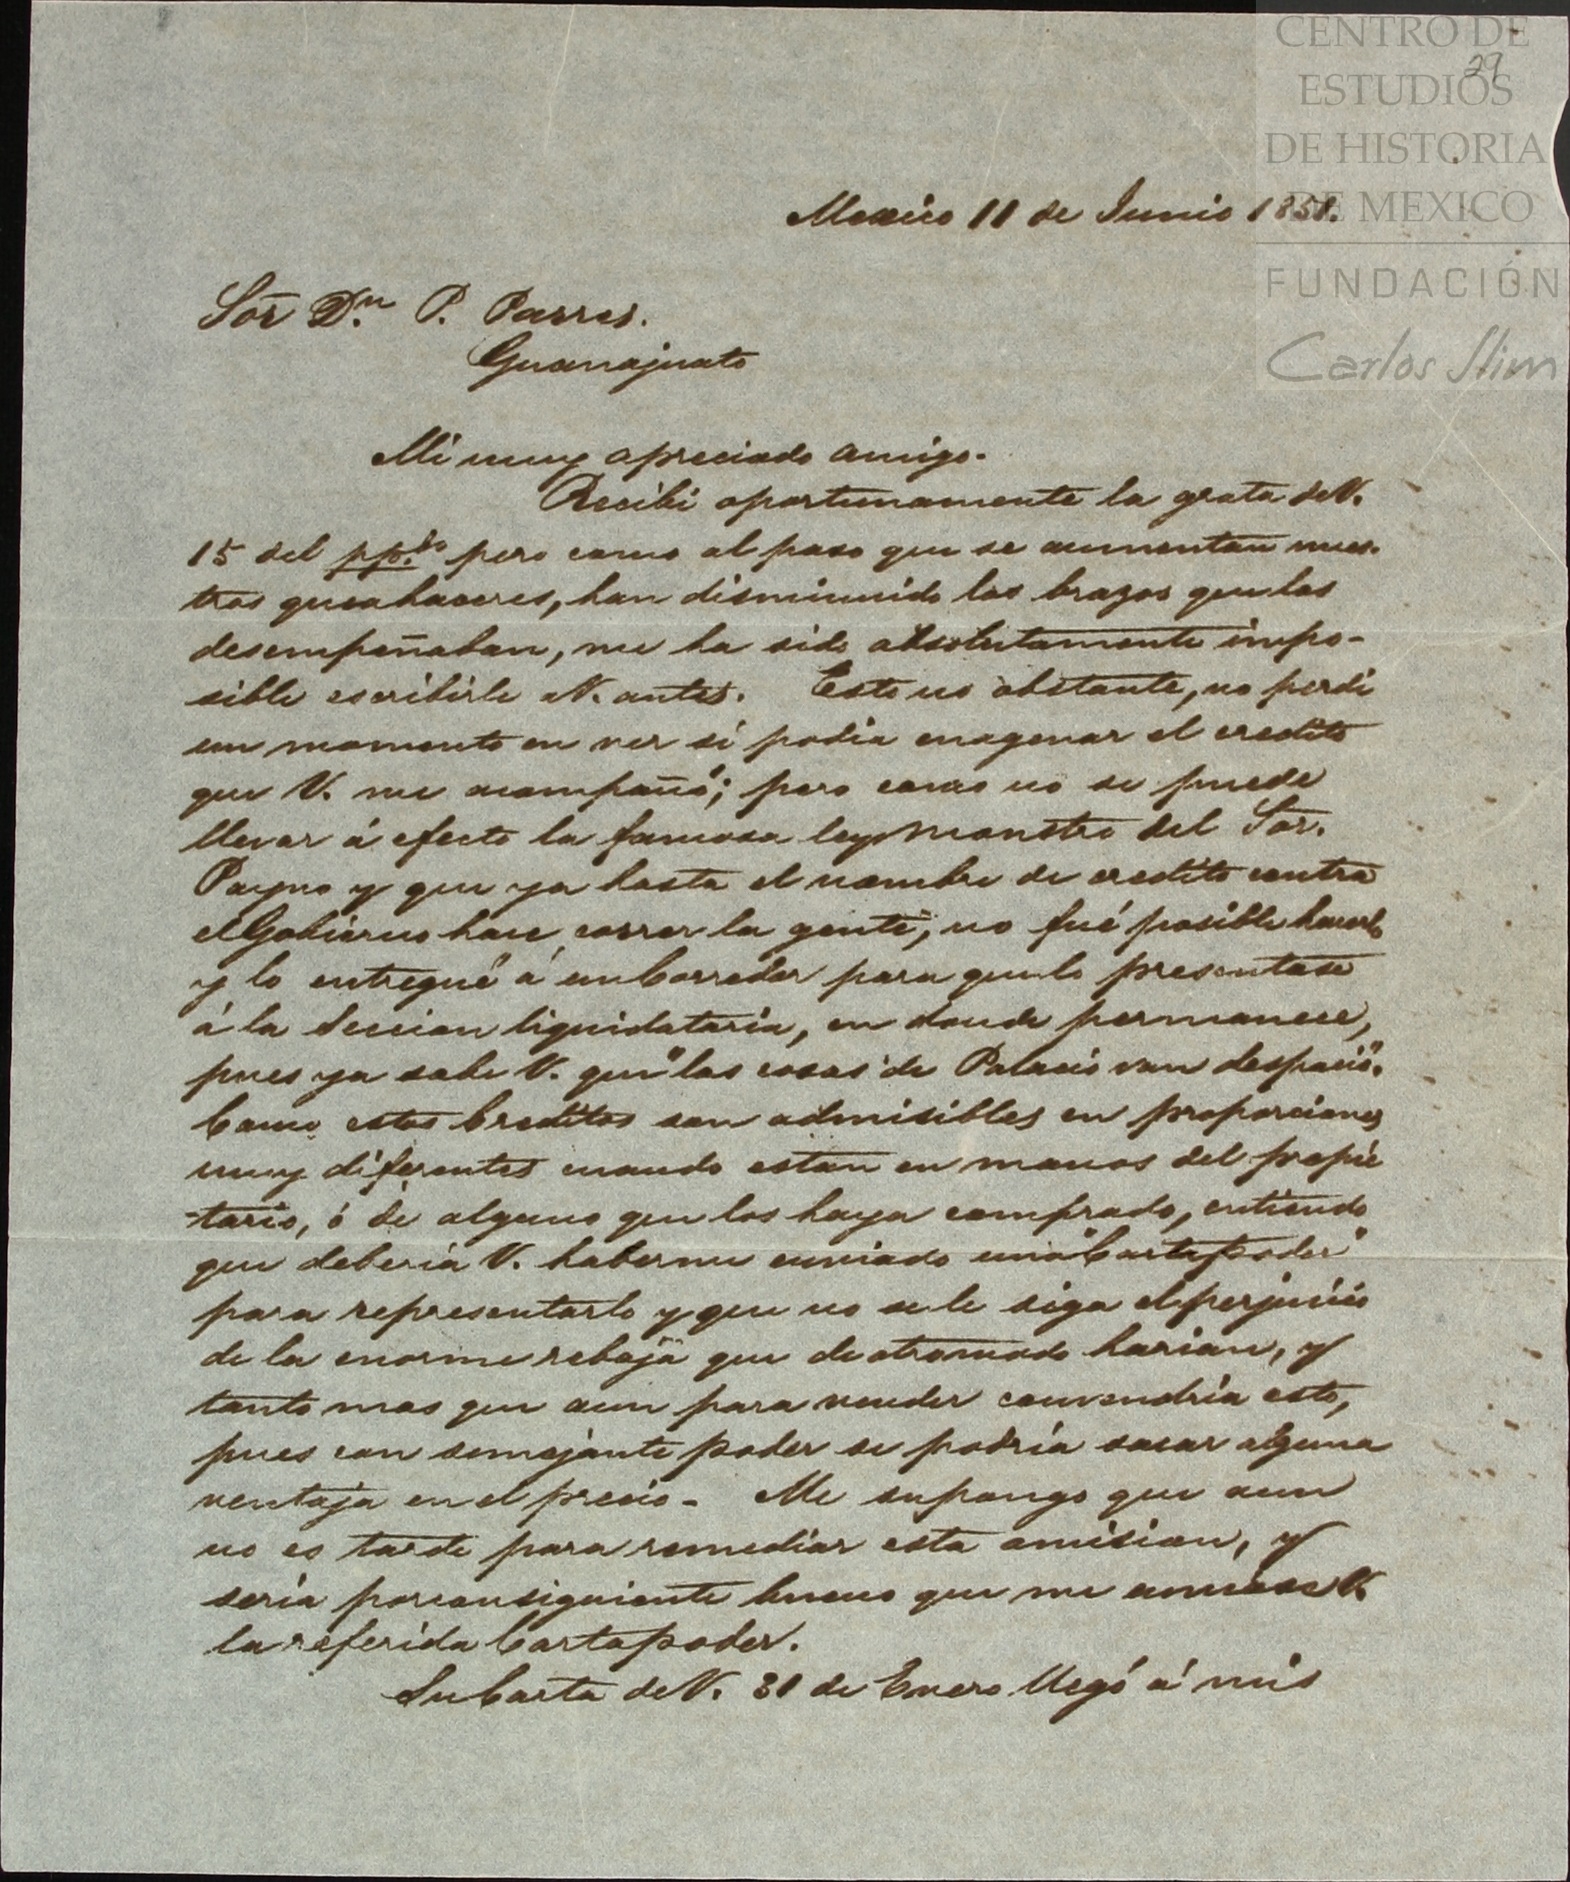 CENTRO DE
ESTUDIOS
DE HISTORIA
DE MEXICO
FUNDACIÓN
Carlos Slim
29
Mexico 11 de Junio 1851.
Sor Dn. P. Parres.
Guanajuato
Mi muy apreciado amigo.
Recibi oportunamente la grata de V.
15 del ppdo. pero como al paso que se aumentan nues-
tros quehaceres, han disminuido los brazos que los
desempeñaban, me ha sido absolutamente impo-
sible escribirle a V. antes. Esto no obstante, no perdi
un momento en ver si podia enagenar el credito
que V. me acompañó; pero como no se puede
llevar á efecto la famosa ley monstro del Sor.
Payno y que ya hasta el nombre de credito contra
el Gobierno hace correr la gente, no fué posible hacerlo
y lo entregué á un Corredor para que lo presentase
á la Seccion liquidataria, en donde permanece,
pues ya sabe V. que "las cosas de Palacio van despacio".
Como estos Creditos son admisibles en proporciones
muy diferentes cuando estan en manos del propie
-tario, ó de alguno que los haya comprado, entiendo
que deberia V. haberme enviado una "Carta poder"
para representarlo y que no se le siga el perjuicio
de la enorme rebaja que de otro modo harian, y
tanto mas que aun para vender convendria esto,
pues con semejante poder se podria sacar alguna
ventaja en el precio. Me supongo que aun
no es tarde para remediar esta omision, y
seria por consiguiente bueno que me enviase V.
la referida Carta poder.
Su Carta de V. 31 de Enero llegó á mis